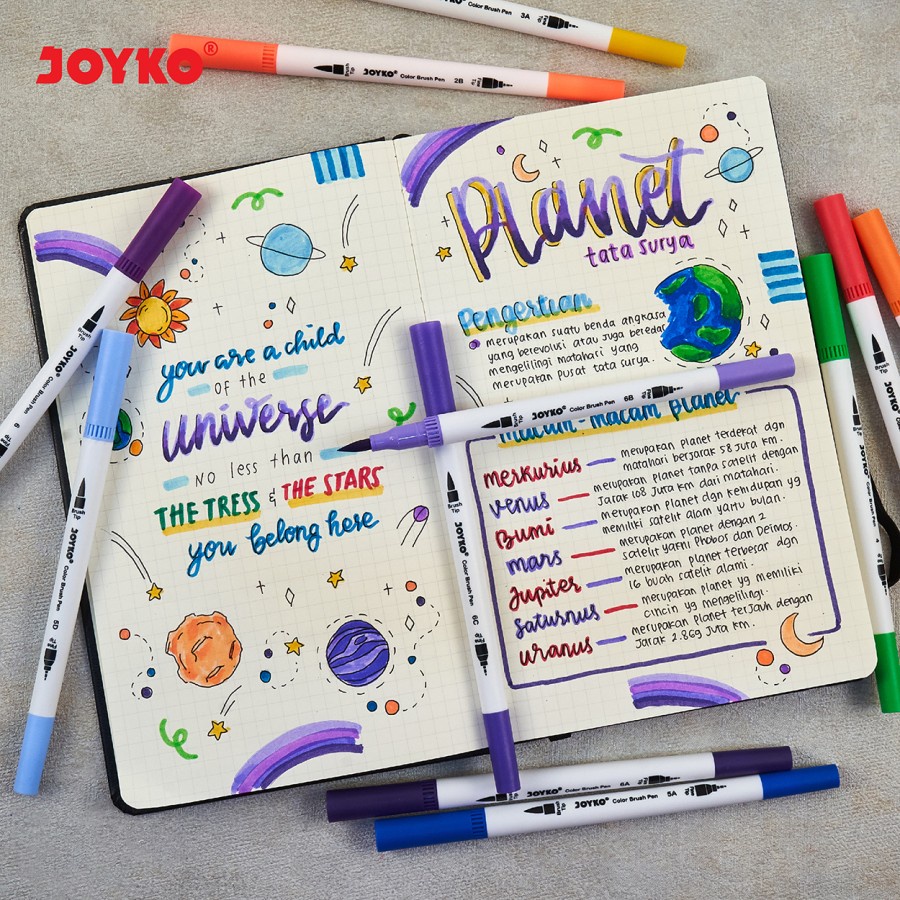 JOYKO®
Color Brush Pen 3A
Brush Tip JOYKO Color Brush Pen 2B Fine Tip
you are a child
of the
universe
no less than
THE TRESS & THE STARS
you belong here
Planet
tata surya
Pengertian
merupakan suatu benda angkasa
yang berevolusi atau juga beredar
mengelilingi matahari yang
merupakan pusat tata surya.
macam-macam planet
merkurius – merupakan planet terdekat dgn
matahari berjarak 58 juta km.
venus – merupakan planet tanpa satelit dengan
jarak 108 juta km dari matahari.
Bumi – merupakan planet dgn kehidupan yg
memiliki satelit alam yaitu bulan.
mars – merupakan planet dengan 2
satelit yakni Phobos dan Deimos.
Jupiter – merupakan planet terbesar dgn
16 buah satelit alami.
saturnus – merupakan planet yg memiliki
cincin yg mengelilingi.
uranus – merupakan planet terjauh dengan
jarak 2.869 juta km.
Brush Tip JOYKO Color Brush Pen 6B Fine Tip
Brush Tip JOYKO 6
Brush Tip JOYKO Color Brush Pen 5D Fine Tip
Brush Tip JOYKO Color Brush Pen 6C Fine Tip
Brush Tip
Brush Tip
JOYKO Color Brush Pen 6A Fine Tip
Brush Tip JOYKO Color Brush Pen 5A Fine Tip